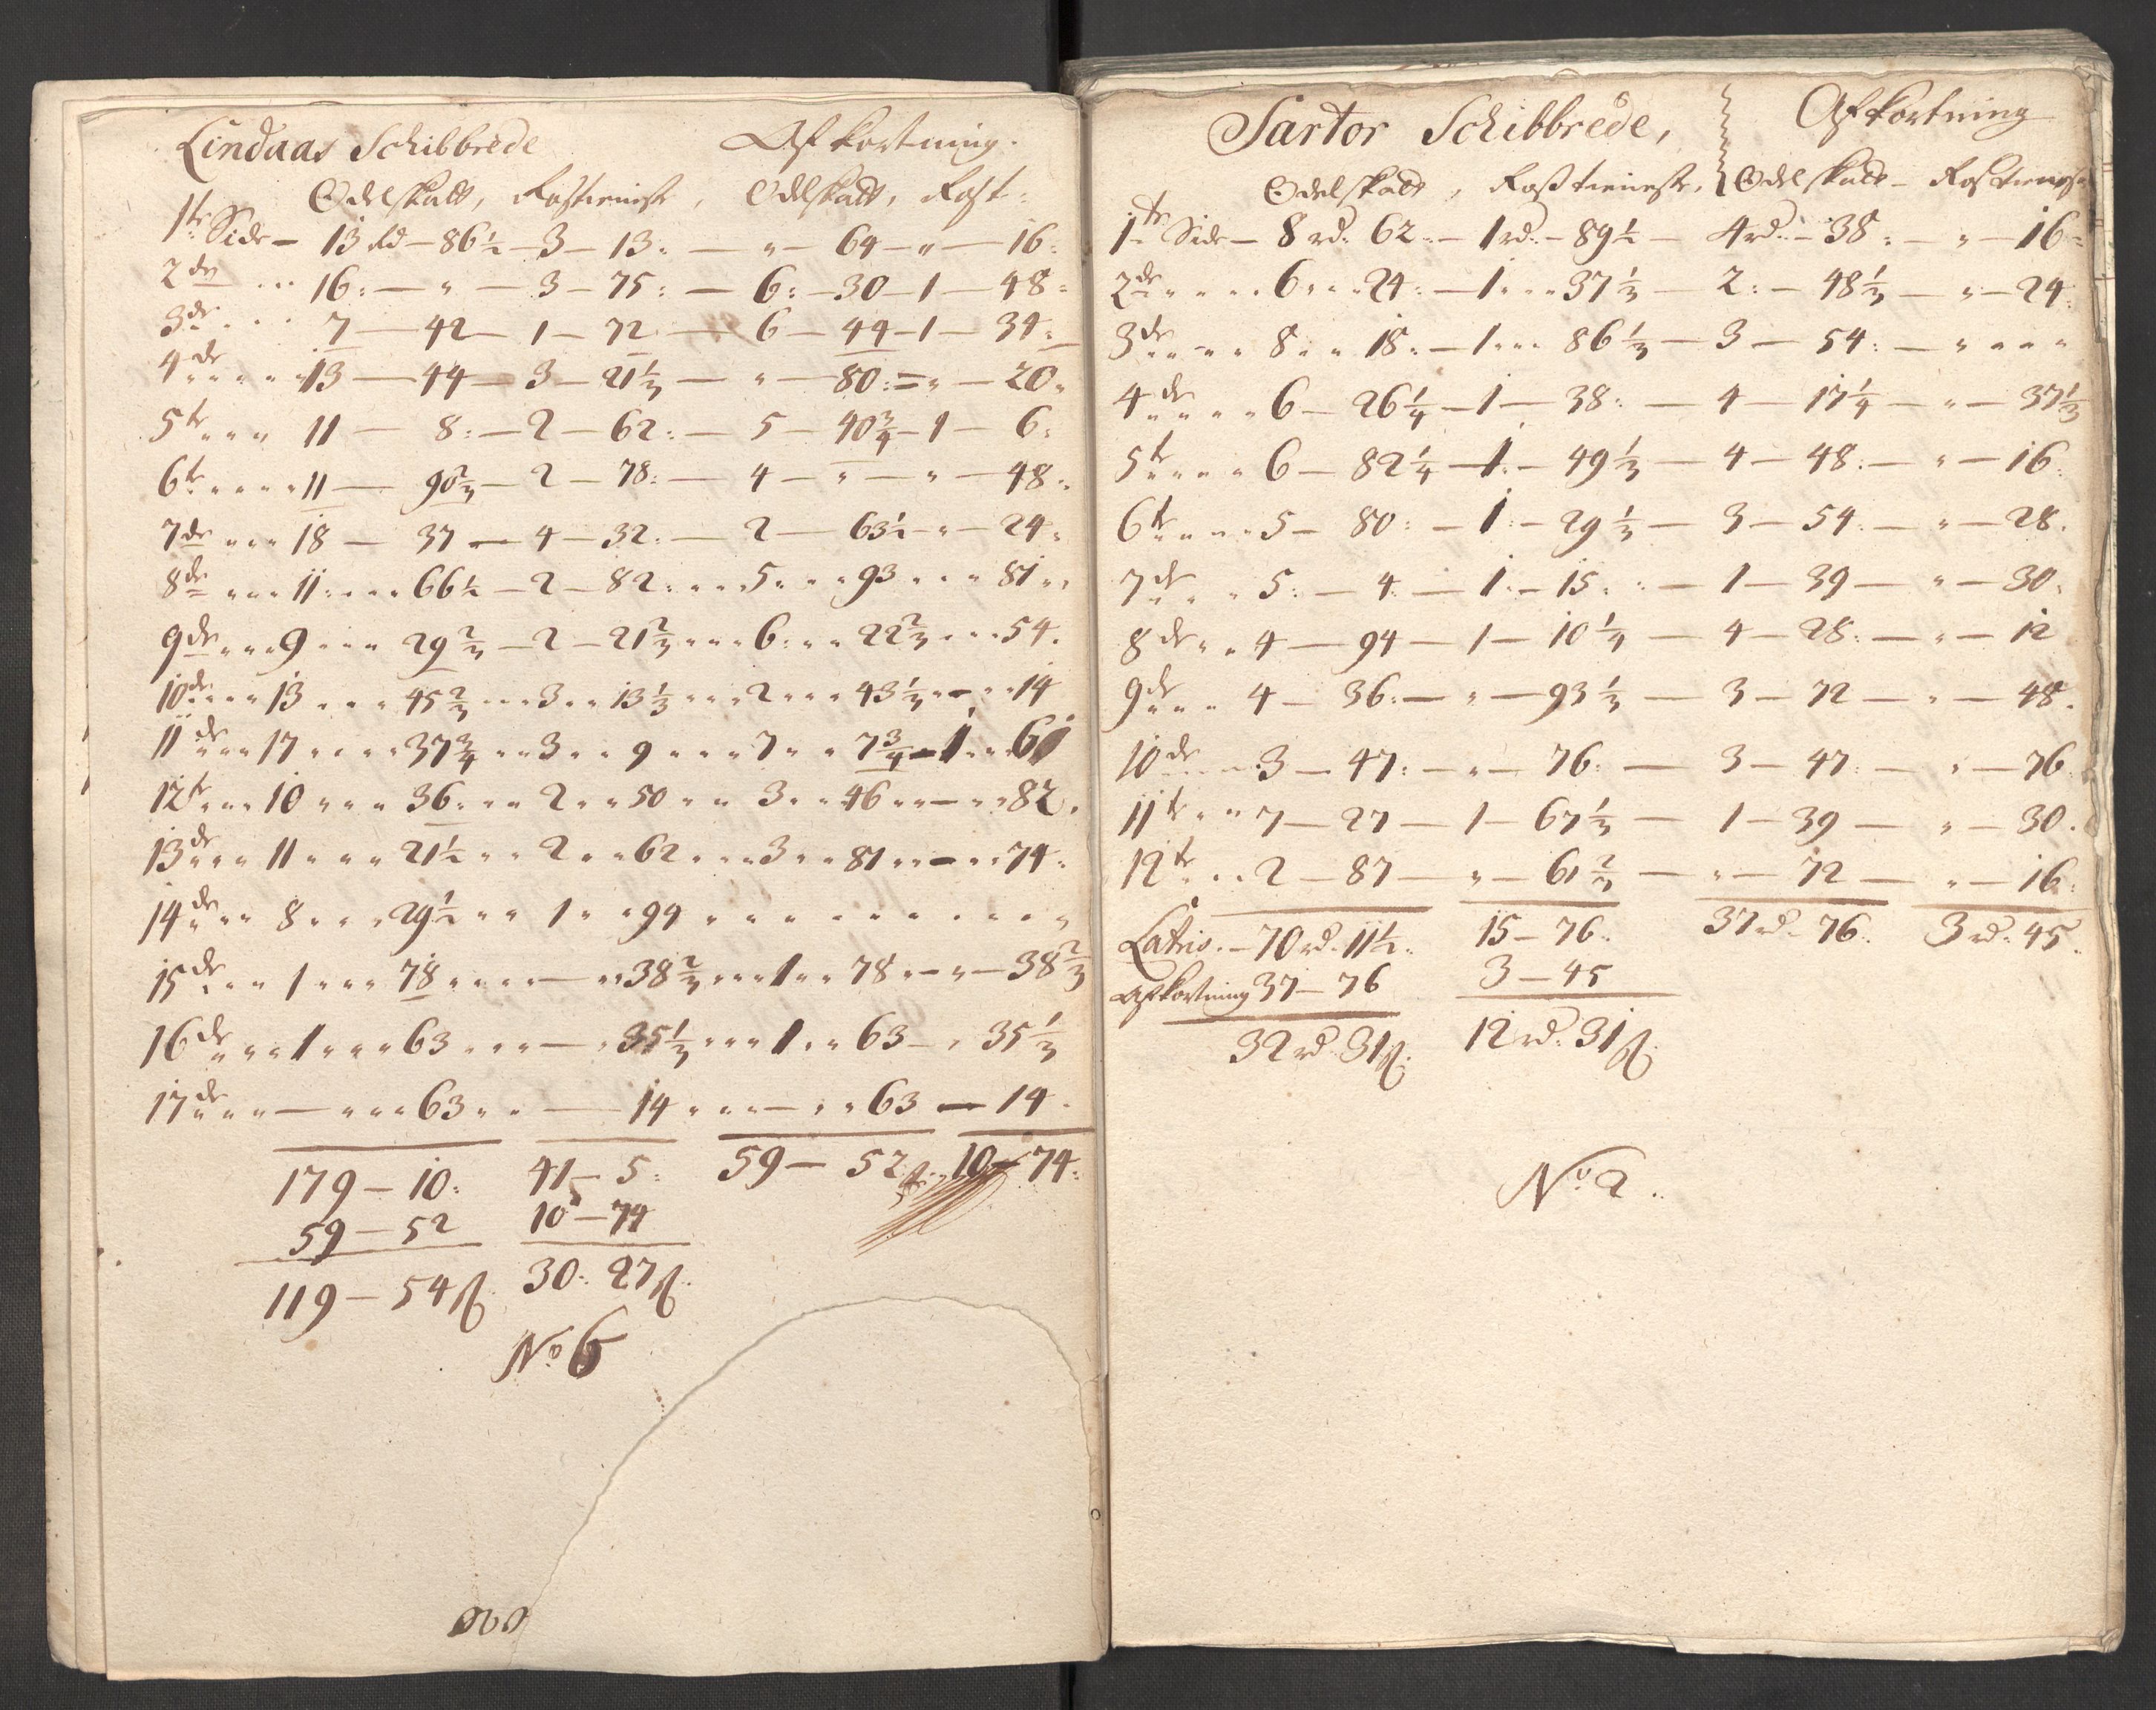 Lindaas Schibbrede Afkortning.
Odelskatt, Rostienist, Odelskatt, Rost:
1te Side – 13 Rd – 86½ – 3 – 13: – " – 64 – " – 16:
2de ... 16: – " – 3 – 75: – 6: – 30 – 1 – 48:
3de ... 7 – 42 – 1 – 72 – 6 – 44 – 1 – 34:
4de .... 13 – 44 – 3 – 21⅓ – " – 80: – " – 20.
5te ... 11 – 8: – 2 – 62: – 5 – 40¾ – 1 – 6:
6te .... 11 – 90⅔ – 2 – 78: – 4 – " – " – 48:
7de ... 18 – 37 – 4 – 32: – 2 – 63½ – " – 24.
8de ... 11 .... 66½ – 2 – 82: ... 5 ... 93 ... 81 ..
9de ... 9 ... 29⅔ – 2 – 21⅔ ... 6: .. 22⅔ ... 54.
10de ... 13 ... 45⅔ ... 3 .. 13⅓ ... 2 ... 43⅓ .. – .. 14
11de ... 17 .... 37¾ .. 3 .. 9 .... 7 .. 7¾ – 1 .. 61
12te ... 10 ... 36 ... 2 .. 50 .. 3 .. 46 .. – .. 82.
13de ... 11 ... 21½ .. 2 .. 62 ... 3 .. 81 .. – .. 74.
14de .. 8 ... 29½ .. 1 .. 94 . . . . . . . . . .
15de ... 1 ... 78 .... – .. 38⅔ ... 1 .. 78 . – " – 38⅔
16de ... 1 ... 63 ... – . 35⅓ ... 1 .. 63 – . 35⅓
17de ... – ... 63 .. – 14 ... – .. 63 – 14.
179 – 10: 41 – 5: 59 – 52ß. 10 – 74:
59 – 52 10 – 74
119 – 54ß. 30: 27ß.
No 6
Sartor Schibbrede, Afkortning
Odelskatt, Rosstieneste, Odelskatt – Rostienest
1te Side – 8 rd. 62: – 1 rd. – 89½ – 4 rd. – 38: – " – 16:
2de .... 6 ... 24: – 1 ... 37⅓ – 2: – 48⅓ – " – 24:
3de .... 8 .. 18: – 1 ... 86⅓ – 3 – 54: – " . . .
4de .... 6 – 26¼ – 1 – 38: – 4 – 17¼ – " – 37⅓
5te .... 6 – 82¼ – 1. – 49⅓ – 4 – 48: – " – 16:
6te .... 5 – 80: – 1: – 29⅓ – 3 – 54: – " – 28.
7de ... 5: – 4: – 1. – 15: – 1 – 39 – " – 30:
8de .. 4 – 94 – 1 – 10¼ – 4 – 28: – " – 12
9de ... 4 – 36: – " – 93⅓ – 3 – 72 – " – 48.
10de .... 3 – 47: – " – 76: – 3 – 47: – " – 76
11te .. 7 – 27 – 1 – 67⅓ – 1 – 39 – " – 30.
12te ... 2 – 87 – " – 61⅔ – " – 72 – " – 16:
Latris. – 70 rd. 11½: 15 – 76: 37 rd. 76: 3 rd. 45.
Afkortning 37 – 76 3 – 45
32 rd. 31ß. 12 rd. 31ß.
No 2.